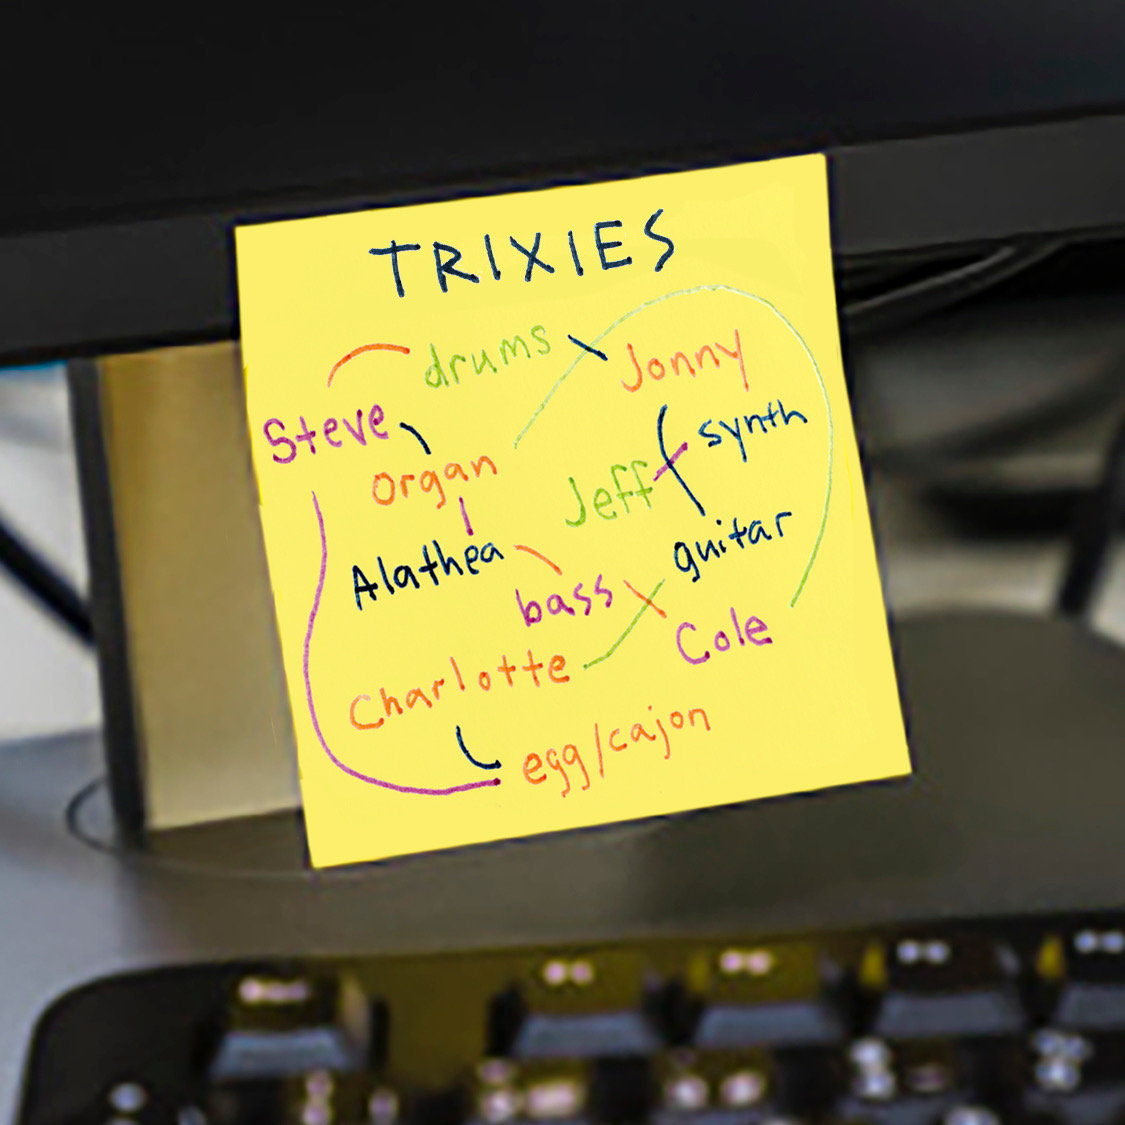 TRIXIES
drums
Jonny
Steve
synth
organ
Jeff
guitar
Alathea
bass
Cole
Charlotte
egg/cajon